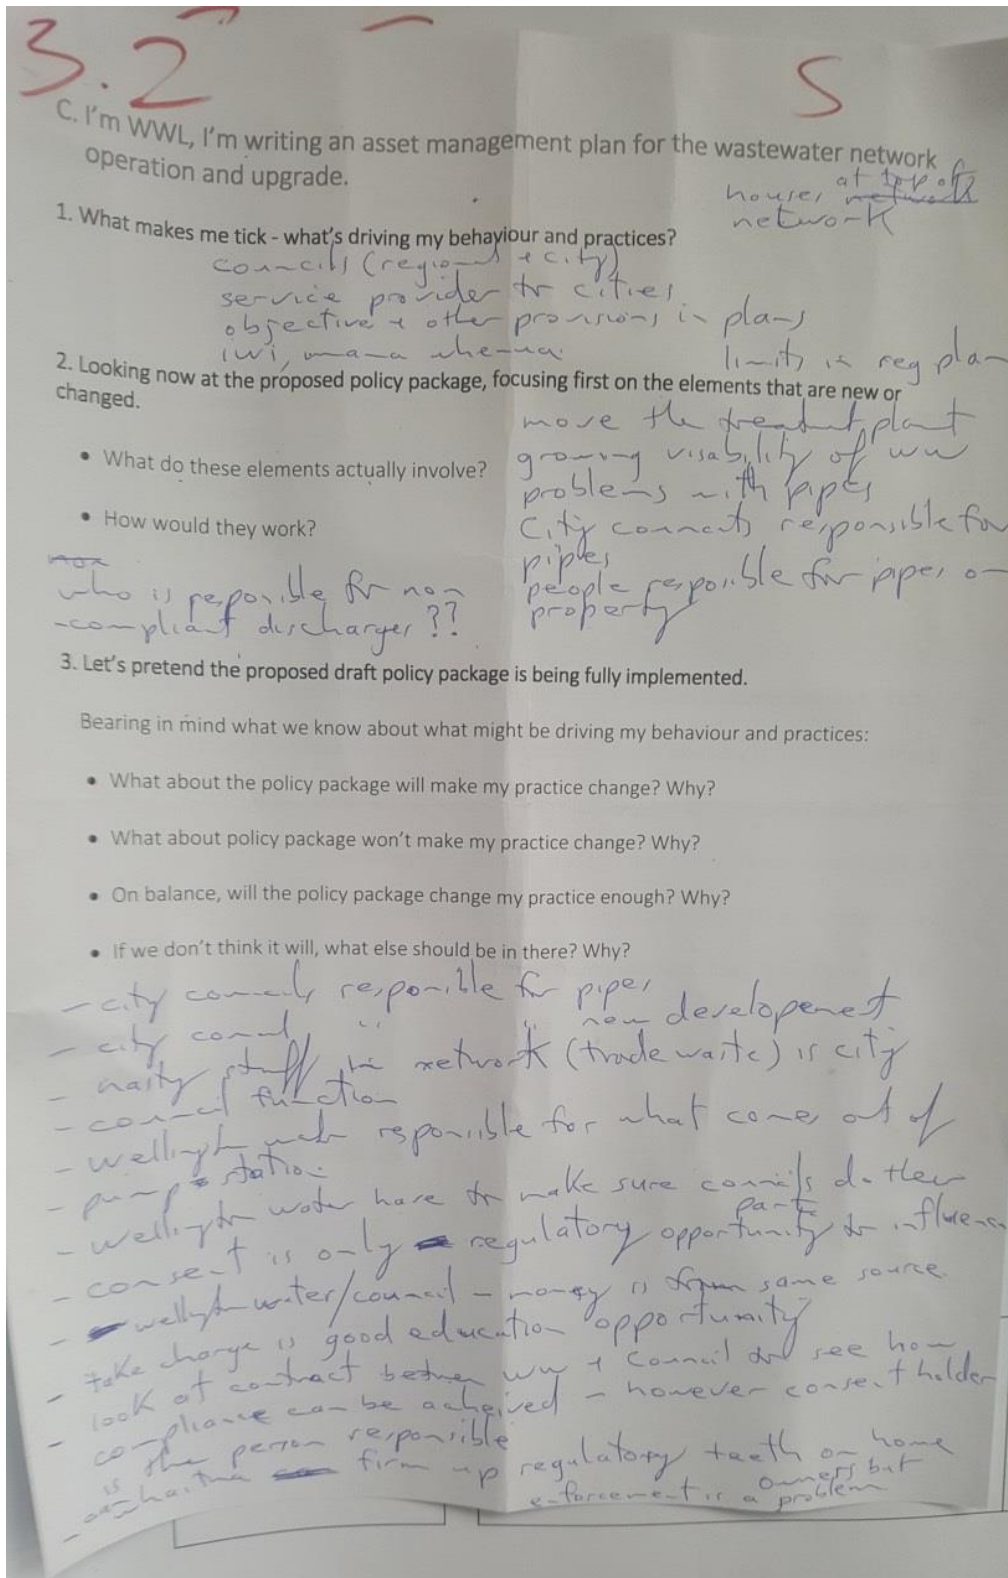 3.2
S
C. I'm WWL, I'm writing an asset management plan for the wastewater network
operation and upgrade.
houses at top of network
network
1. What makes me tick - what's driving my behaviour and practices?
councils (regional + city)
service provider to cities
objective + other provisions in plans
iwi, mana whenua
limits in reg plan
2. Looking now at the proposed policy package, focusing first on the elements that are new or
changed.
move the treatment plant
• What do these elements actually involve?
growing visability of ww
problems with pipes
• How would they work?
City councils responsible for
pipes
people responsible for pipes on
property
non
who is reponsible for non
-compliant discharges ??
3. Let's pretend the proposed draft policy package is being fully implemented.
Bearing in mind what we know about what might be driving my behaviour and practices:
• What about the policy package will make my practice change? Why?
• What about policy package won't make my practice change? Why?
• On balance, will the policy package change my practice enough? Why?
• If we don't think it will, what else should be in there? Why?
- city councils responsible for pipes
- city council " " new developement
- nasty stuff in network (trade waste) is city
- council function
- wellington water responsible for what comes out of
- pump station
- wellington water have to make sure councils do their
part
- consent is only regulatory opportunity to influence
- wellington water/council - money is from same source
- take charge is good education opportunity
- look at contract between ww + council to see how
compliance can be acheived - however consent holder
is the person responsible
- firm up regulatory teeth on home
owners but
enforcement is a problem